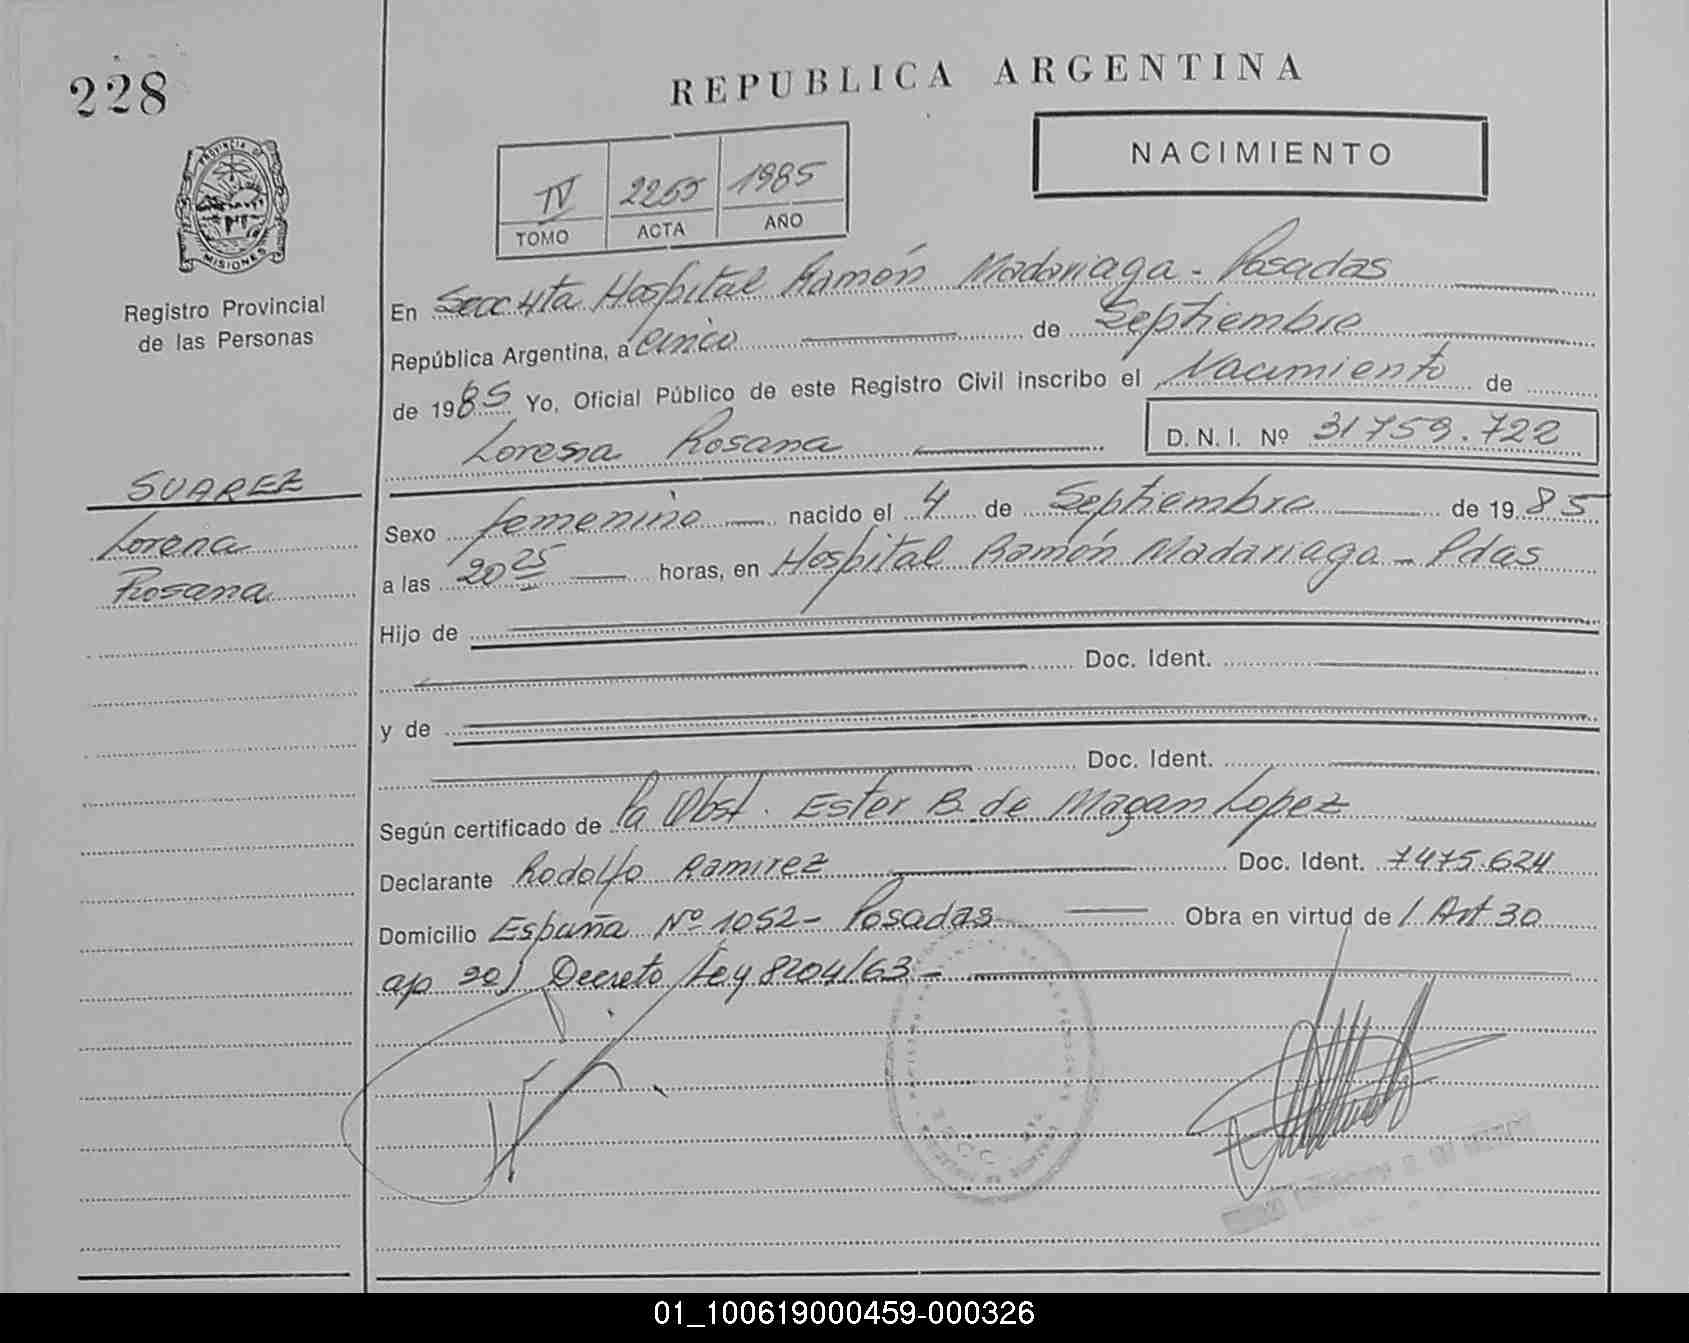 228
REPUBLICA ARGENTINA
NACIMIENTO
IV 2255 1985
TOMO ACTA AÑO
PROVINCIA DE
MISIONES
Registro Provincial
de las Personas
En Secc 4ta Hospital Ramón Madariaga - Posadas
República Argentina, a cinco de Septiembre
de 1985 Yo, Oficial Público de este Registro Civil inscribo el Nacimiento de
Lorena Rosana D. N. I. Nº 31759.722
SUAREZ
Lorena
Rosana
Sexo femenino nacido el 4 de Septiembre de 1985
a las 20 25 horas, en Hospital Ramón Madariaga - Pdas
Hijo de
Doc. Ident.
y de
Doc. Ident.
Según certificado de la Obst. Ester B. de Magan Lopez
Declarante Rodolfo Ramirez Doc. Ident. 7475.624
Domicilio España Nº 1052 - Posadas Obra en virtud de l. Art 30
ap 20) Decreto Ley 8204/63 -
SECC. 4ta
01_100619000459-000326